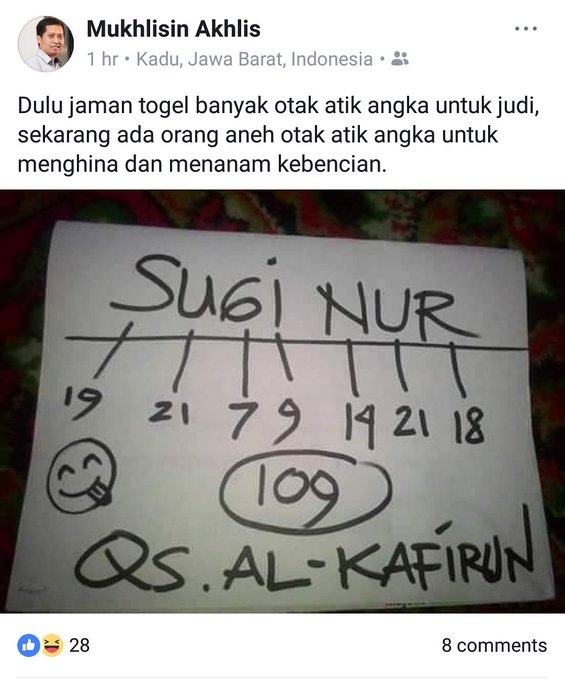 Mukhlisin Akhlis
1 hr • Kadu, Jawa Barat, Indonesia •
Dulu jaman togel banyak otak atik angka untuk judi,
sekarang ada orang aneh otak atik angka untuk
menghina dan menanam kebencian.
SUGi NUR
19 21 7 9 14 21 18
109
QS. AL-KAFiRUN
28 8 comments